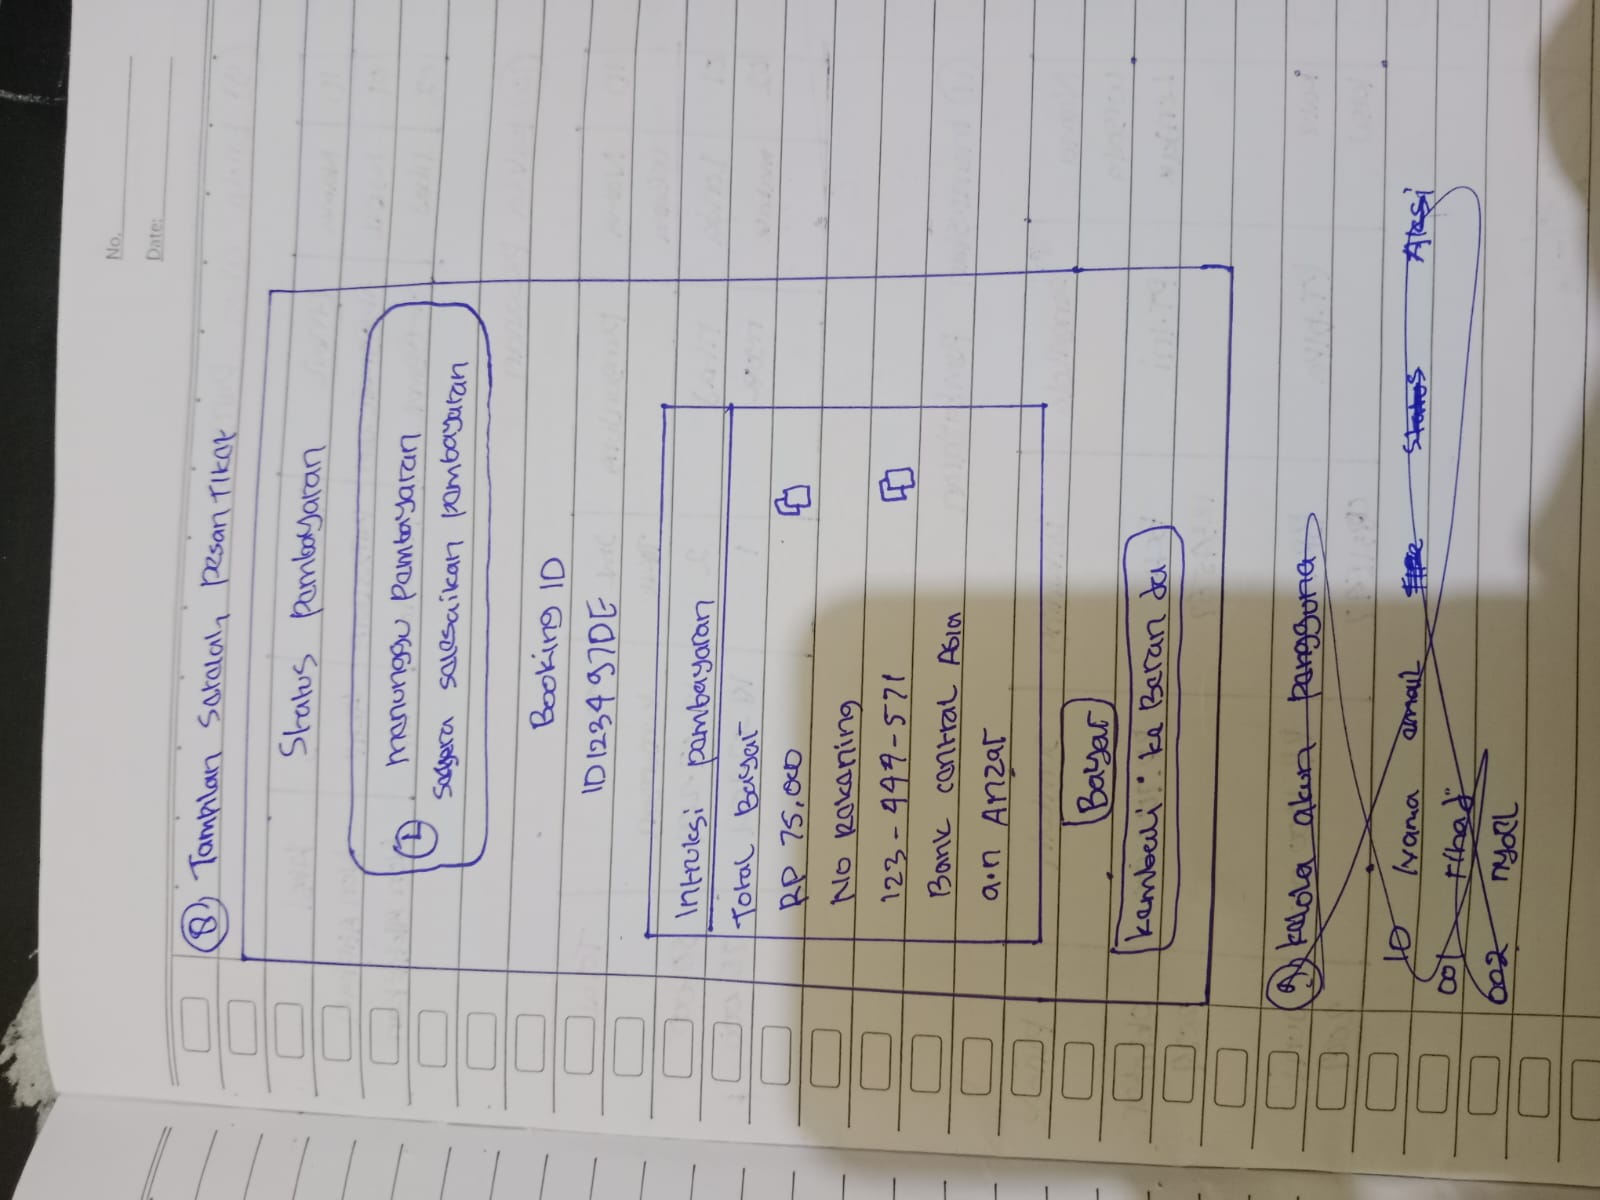 No.
Date:
8) Tampilan setelah pesan tiket
Status pembayaran
menunggu pembayaran
segera selesaikan pembayaran
Booking ID
ID123497DE
Intruksi pembayaran
Total Bayar
RP 75.000
No Rekening
123-444-571
Bank central Asia
a.n Anzar
Bayar
kembali ke Beranda
9) kelola akun pengguna
ID Nama email Tipe Status Aksi
001 Fihad
002 nyoel